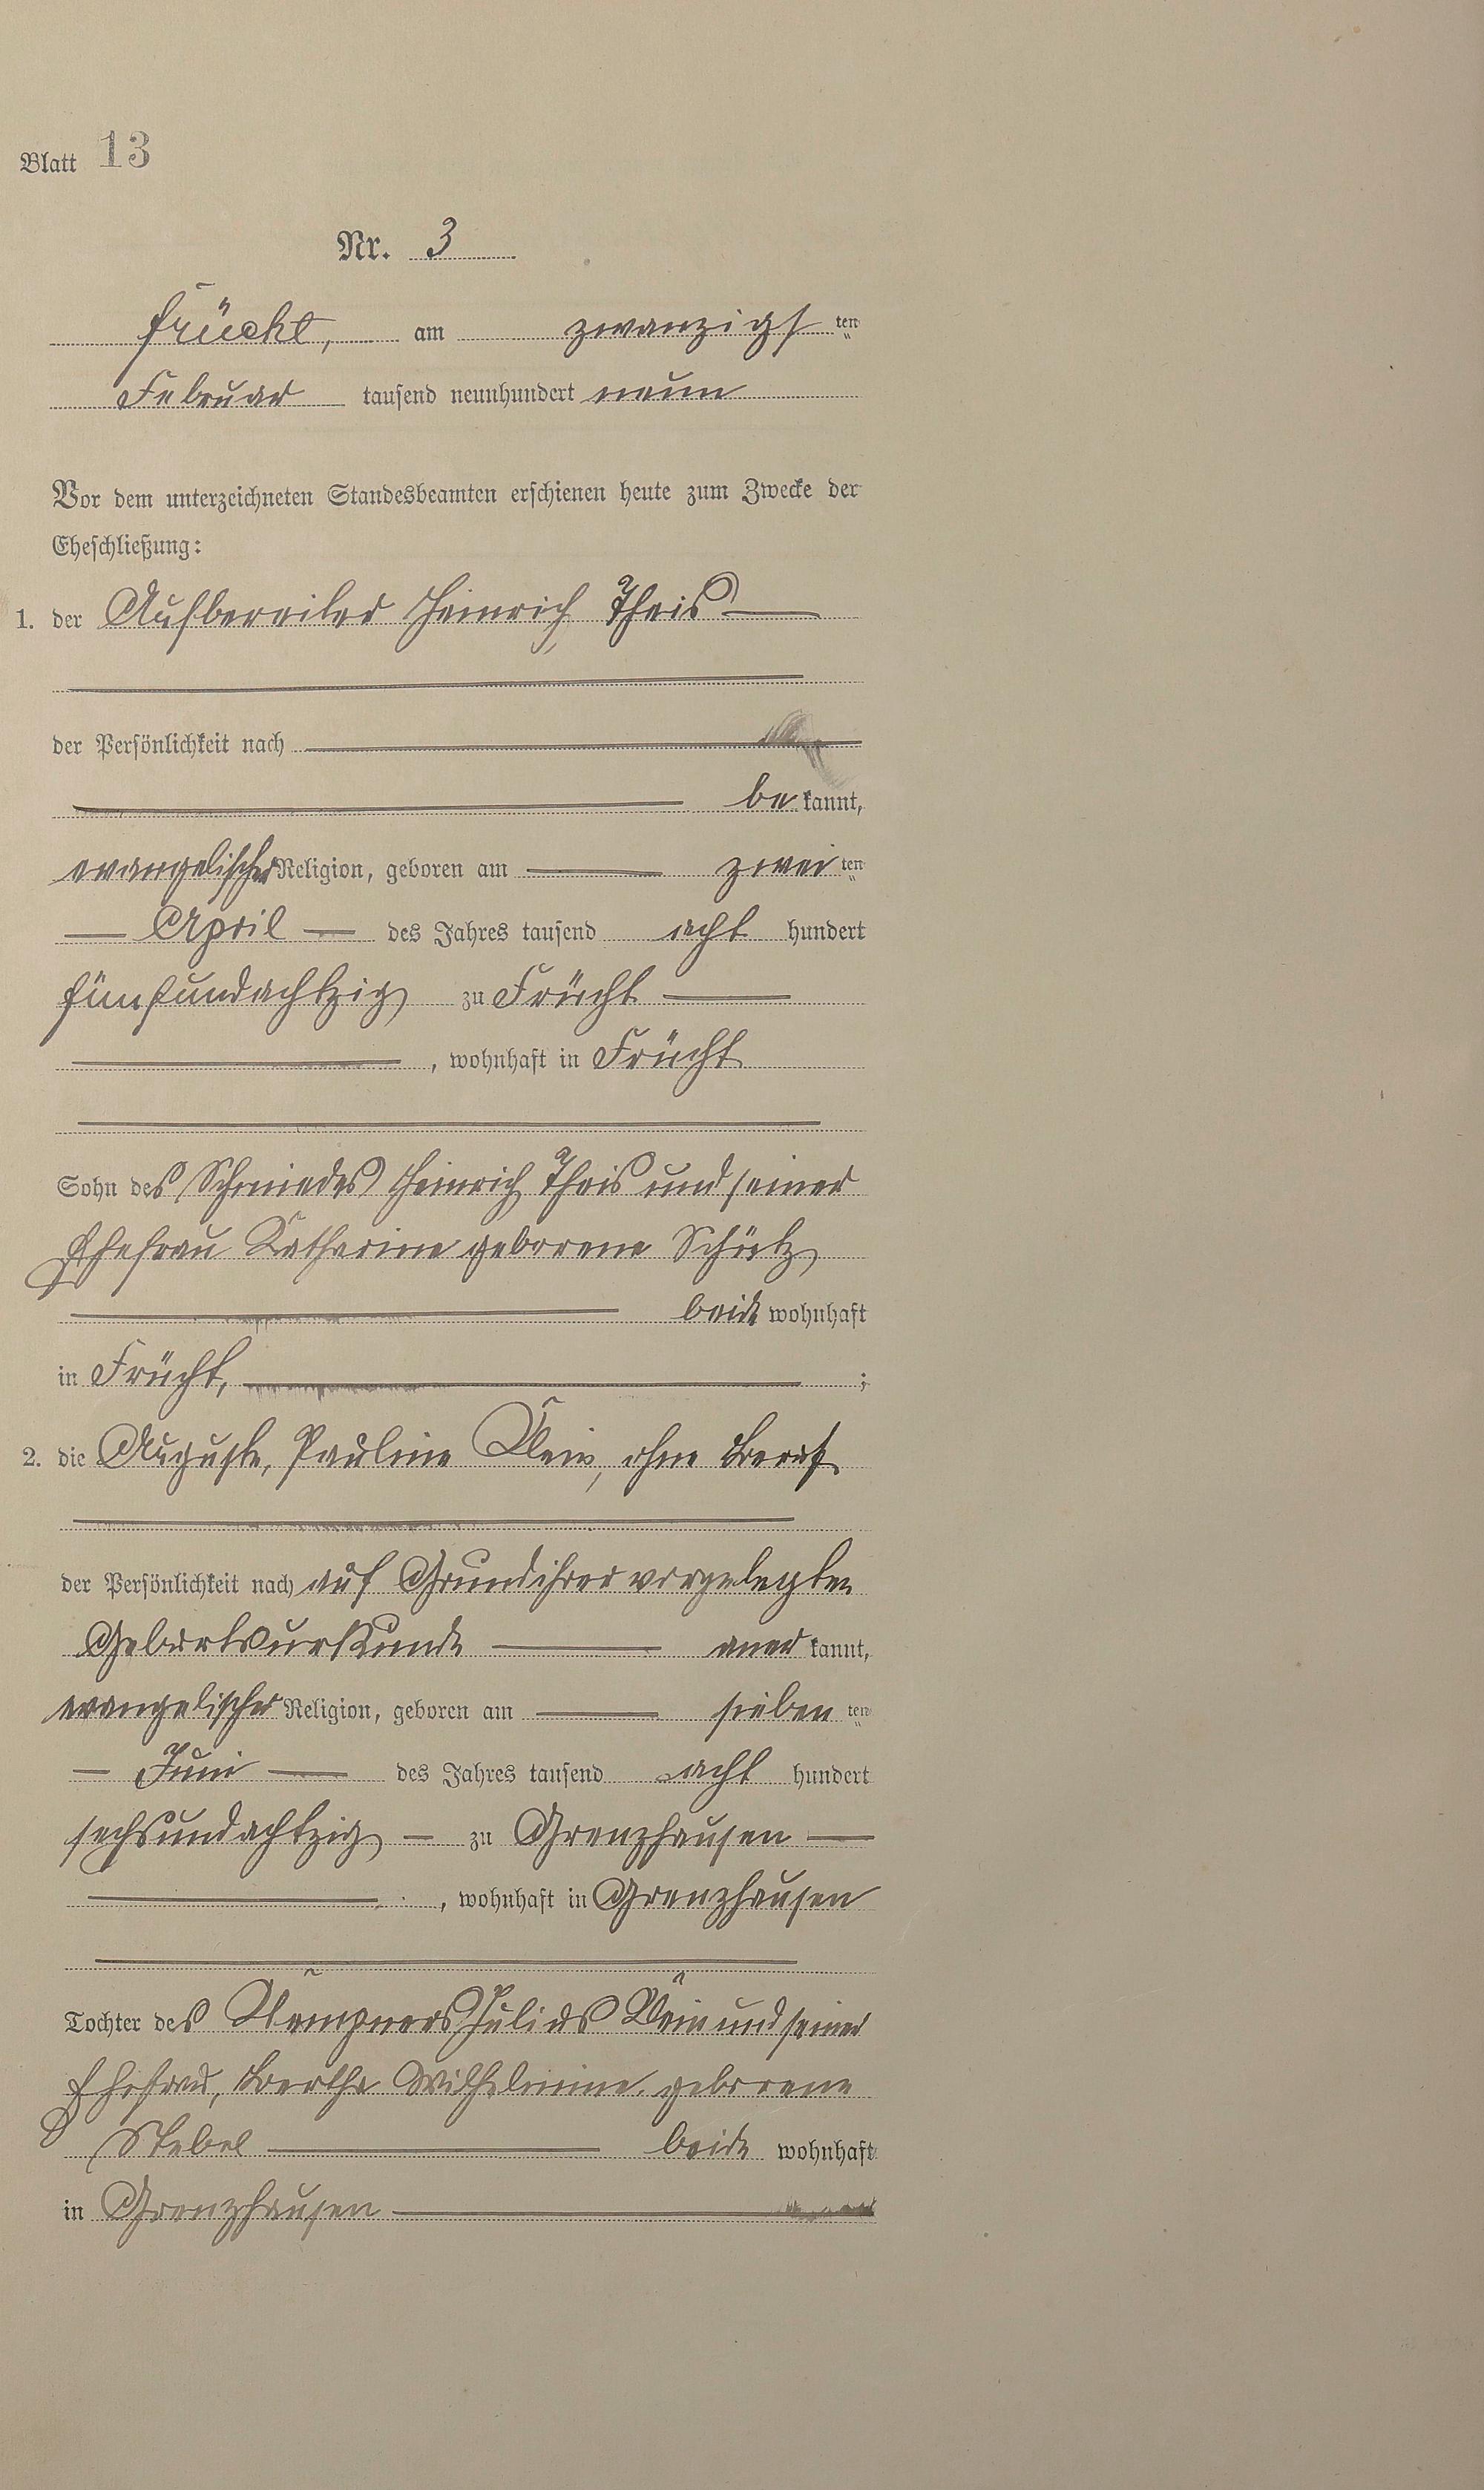 Blatt 13
Nr. 3
Frücht, am zwanzigsten
Februar tausend neunhundert neun
Vor dem unterzeichneten Standesbeamten erschienen heute zum Zwecke der
Eheschließung:
1. der Aufbereiter Heinrich Theis
der Persönlichkeit nach
bekannt,
evangelischer Religion, geboren am zweiten
April des Jahres tausend acht hundert
fünfundachtzig zu Frücht
, wohnhaft in Frücht
Sohn des Schmiedes Heinrich Theis und seiner
Ehefrau Katharine geborene Schütz
beide wohnhaft
in Frücht, ;
2. die Auguste, Pauline Klein, ohne Beruf
der Persönlichkeit nach auf Grund ihrer vorgelegten
Geburtsurkunde anerkannt,
evangelischer Religion, geboren am siebenten
Juni des Jahres tausend acht hundert
sechsundachtzig zu Grenzhausen
, wohnhaft in Grenzhausen
Tochter des Klempners Julius Klein und seiner
Ehefrau, Bertha Wilhelmine geborene
Stebel beide wohnhaft
in Grenzhausen